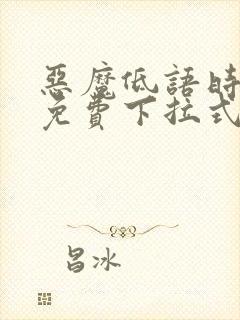 惡魔低語時
免費下拉式
昌冰